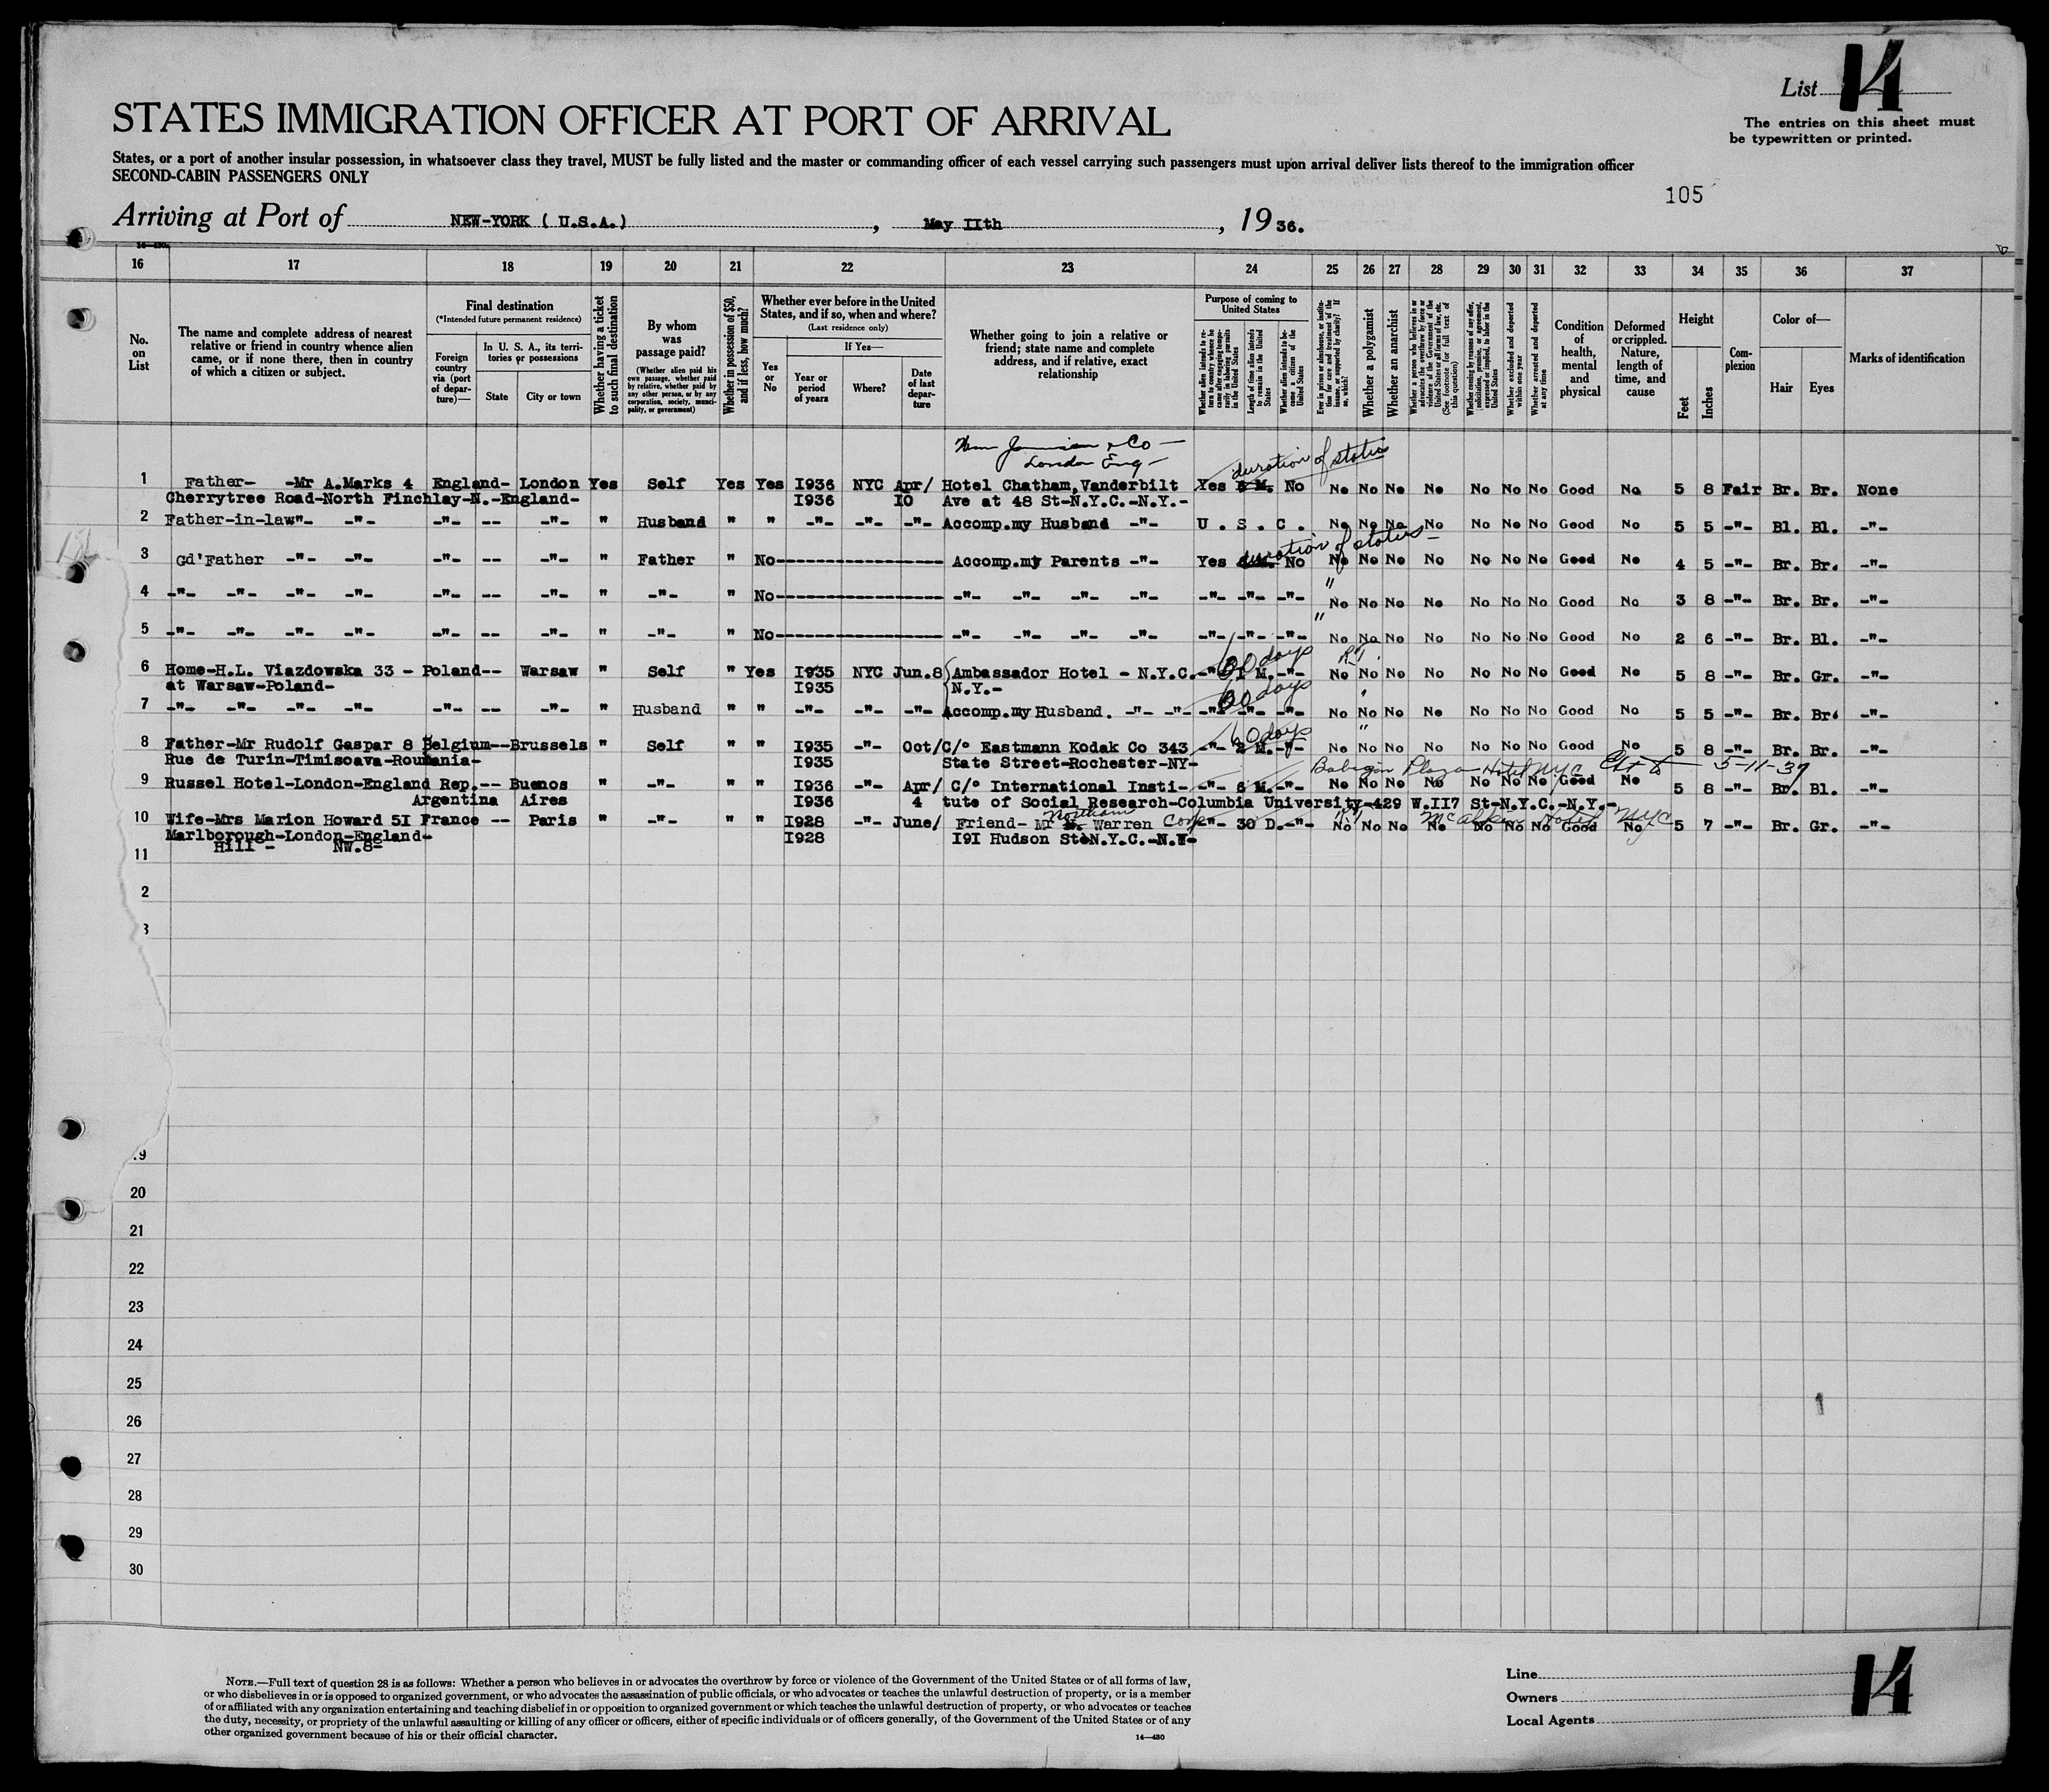 List 14
The entries on this sheet must
be typewritten or printed.
STATES IMMIGRATION OFFICER AT PORT OF ARRIVAL
States, or a port of another insular possession, in whatsoever class they travel, MUST be fully listed and the master or commanding officer of each vessel carrying such passengers must upon arrival deliver lists thereof to the immigration officer
SECOND-CABIN PASSENGERS ONLY
105
Arriving at Port of NEW-YORK ( U.S.A.) , May IIth , 19 36.
16 17 18 19 20 21 22 23 24 25 26 27 28 29 30 31 32 33 34 35 36 37
No. on List
The name and complete address of nearest relative or friend in country whence alien came, or if none there, then in country of which a citizen or subject.
Final destination
(*Intended future permanent residence)
Foreign country via (port of departure)—
In U. S. A., its territories or possessions
State
City or town
Whether having a ticket to such final destination
By whom was passage paid?
(Whether alien paid his own passage, whether paid by relative, whether paid by any other person, or by any corporation, society, municipality, or government)
Whether in possession of $50, and if less, how much?
Whether ever before in the United States, and if so, when and where?
(Last residence only)
Yes or No
If Yes—
Year or period of years
Where?
Date of last departure
Whether going to join a relative or friend; state name and complete address, and if relative, exact relationship
Purpose of coming to United States
Whether alien intends to return to country whence he came after engaging temporarily in laboring pursuits in the United States
Length of time alien intends to remain in the United States
Whether alien intends to become a citizen of the United States
Whether a polygamist
Whether an anarchist
Whether excluded and deported within one year
Whether arrested and deported at any time
Condition of health, mental and physical
Deformed or crippled. Nature, length of time, and cause
Height
Feet
Inches
Complexion
Color of—
Hair
Eyes
Marks of identification
& Co —
London Eng —
duration of status
1 Father- -Mr A.Marks 4 England- London Yes Self Yes Yes I936 NYC Apr/ Hotel Chatham,Vanderbilt Yes No No No No No No No No Good No 5 8 Fair Br. Br. None
Cherrytree Road-North Finchlay-N.-England- I936 IO Ave at 48 St-N.Y.C.-N.Y.-
2 Father-in-law"- -"- -"- -- -"- " Husband " " -"- -"- -"- Accomp.my Husband -"- U . S . C . No No No No No No No Good No 5 5 -"- Bl. Bl. -"-
duration of status
3 Gd'Father -"- -"- -"- -- -"- " Father " No---------------- Accomp.my Parents -"- Yes No No No No No No No No Good No 4 5 -"- Br. Br. -"-
4 -"- -"- -"- -"- -"- -- -"- " -"- " No---------------- -"- -"- -"- -"- -"- -"- -"- " No No No No No No No Good No 3 8 -"- Br. Br. -"-
5 -"- -"- -"- -"- -"- -- -"- " -"- " No---------------- -"- -"- -"- -"- -"- -"- -"- " No No No No No No No Good No 2 6 -"- Br. Bl. -"-
60 days
6 Home-H.L. Viazdowska 33 - Poland-- Warsaw " Self " Yes I935 NYC Jun.8 Ambassador Hotel - N.Y.C. -"- I M. -"- No No No No No No No Good No 5 8 -"- Br. Gr. -"-
at Warsaw-Poland- I935 N.Y.-
60 days
7 -"- -"- -"- -"- -"- -- -"- " Husband " " -"- -"- -"- Accomp.my Husband. -"- -"- -"- -"- -"- No No No No No No No Good No 5 5 -"- Br. Br. -"-
60 days
8 Father-Mr Rudolf Gaspar 8 Belgium--Brussels " Self " " I935 -"- Oct/ C/° Eastmann Kodak Co 343 -"- 2 M. -"- No No No No No No No Good No 5 8 -"- Br. Br. -"-
Rue de Turin-Timisoava-Roumania- I935 State Street-Rochester-NY-
Plaza Hotel NYC 5-11-37
9 Russel Hotel-London-England Rep.-- Buenos " -"- " " I936 -"- Apr/ C/° International Insti- -"- 6 M. -"- No No No No No No No Good No 5 8 -"- Br. Bl. -"-
Argentina Aires I936 4 tute of Social Research-Columbia University-429 W.II7 St-N.Y.C.-N.Y.-
McAlpin Hotel NYC
10 Wife-Mrs Marion Howard 5I France -- Paris " -"- " " I928 -"- June/ Friend- Mr Northam Warren Corp -"- 30 D. -"- No No No No No No No Good No 5 7 -"- Br. Gr. -"-
Marlborough-London-England- I928 I9I Hudson St-N.Y.C.-N.Y-
Hill - NW.8-
11
2
3
19
20
21
22
23
24
25
26
27
28
29
30
NOTE.—Full text of question 28 is as follows: Whether a person who believes in or advocates the overthrow by force or violence of the Government of the United States or of all forms of law,
or who disbelieves in or is opposed to organized government, or who advocates the assassination of public officials, or who advocates or teaches the unlawful destruction of property, or is a member
of or affiliated with any organization entertaining and teaching disbelief in or opposition to organized government or which teaches the unlawful destruction of property, or who advocates or teaches
the duty, necessity, or propriety of the unlawful assaulting or killing of any officer or officers, either of specific individuals or of officers generally, of the Government of the United States or of any
other organized government because of his or their official character.
14—430
Line
Owners
Local Agents
14